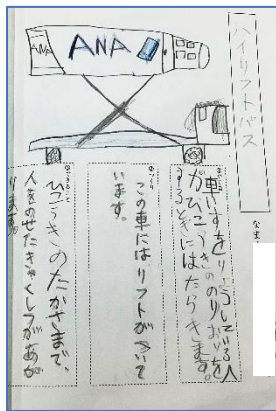 ハイリフトバス
ANA
ANA
なま
車いすをりようしている人
がひこうきののりおりを
するときにはたらきます。
この車にはリフトがついて
います。
ひこうきのたかさまで、
人をのせたきゃくしつがあが
ります。